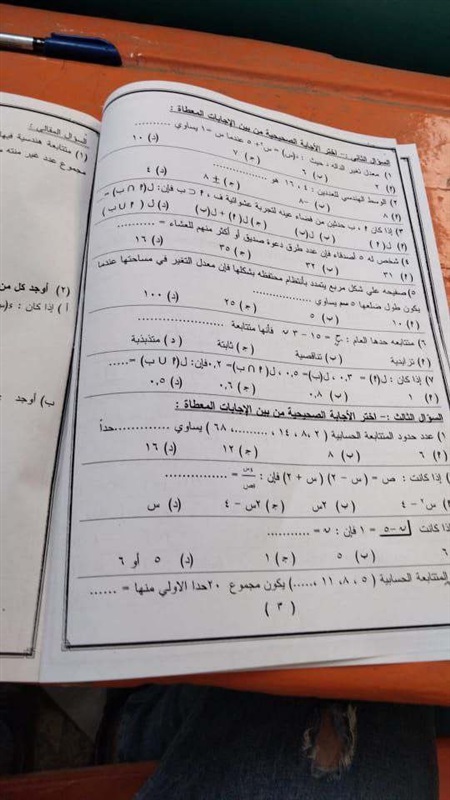 السؤال الثاني :- اختر الأجابة الصحيحية من بين الإجابات المعطاة :
١) معدل تغير الداله د حيث : د(س) = س٢ + ٥ عندما س = ١ يساوي ............
(٢) ٢ (ب) ٦ (ج) ٧ (د) ١٠
٢) الوسط الهندسي للعددين : ٤ ، ١٦ هو ............
(٢) ٨ (ب) -٨ (ج) ± ٨ (د) ٤
٣) إذا كان ٢ ، ب حدثين من فضاء عينه لتجربة عشوائية ف ، ٢ ⊂ ب فإن: ل(٢ ∩ ب) = ...
(٢) ل(٢) (ب) ل(ب) (ج) ل(٢) + ل(ب) (د) ل ( ٢ ∪ ب)
٤) شخص له ٥ أصدقاء فإن عدد طرق دعوة صديق أو أكثر منهم للعشاء = .........
(٢) ٣١ (ب) ٣٢ (ج) ٣٥ (د) ١٦
٥) صفيحه على شكل مربع يتمدد بأنتظام محتفظه بشكلها فإن معدل التغير في مساحتها عندما
يكون طول ضلعها ٥ سم يساوي ................
(٢) ١٠ (ب) ٥ (ج) ٢٥ (د) ١٠٠
٦) متتابعه حدها العام : ح = ١٥ - ٣ ن فأنها متتابعة ....................
(٢) تزايدية (ب) تناقصية (ج) ثابتة (د) متذبذبة
٧) إذا كان : ل(٢) = ٠.٣ ، ل(ب) = ٠.٥ ، ل(٢ ∩ ب) = ٠.٢ فإن: ل(٢ ∪ ب) = .....
(٢) ١ (ب) ٠.٨ (ج) ٠.٦ (د) ٠.٥
السؤال الثالث :- اختر الأجابة الصحيحية من بين الإجابات المعطاة :
١) عدد حدود المتتابعة الحسابية ( ٢ ، ٨ ، ١٤ ، ........، ٦٨ ) يساوي ............حداً
(٢) ٦ (ب) ٨ (ج) ١٢ (د) ١٦
) إذا كانت : ص = ( س - ٢) ( س + ٢) فإن : ءص/ءس = ...............
س٢ - ٤ (ب) ٢س (ج) ٢س - ٤ (د) س
إذا كانت ن - ٥ = ١ فإن : ن = ............
٦ (ب) ٥ (ج) ١ (د) ٥ أو ٦
المتتابعة الحسابية ( ٥ ، ٨ ، ١١ ، .....) يكون مجموع ٢٠حدا الاولي منها = ......
( ٣ )
السؤال المقالي :
(١) متتابعة هندسية فيها
مجموع عدد غير منته
(٢) أوجد كل من
أ ) إذا كان :
ب) أوجد :